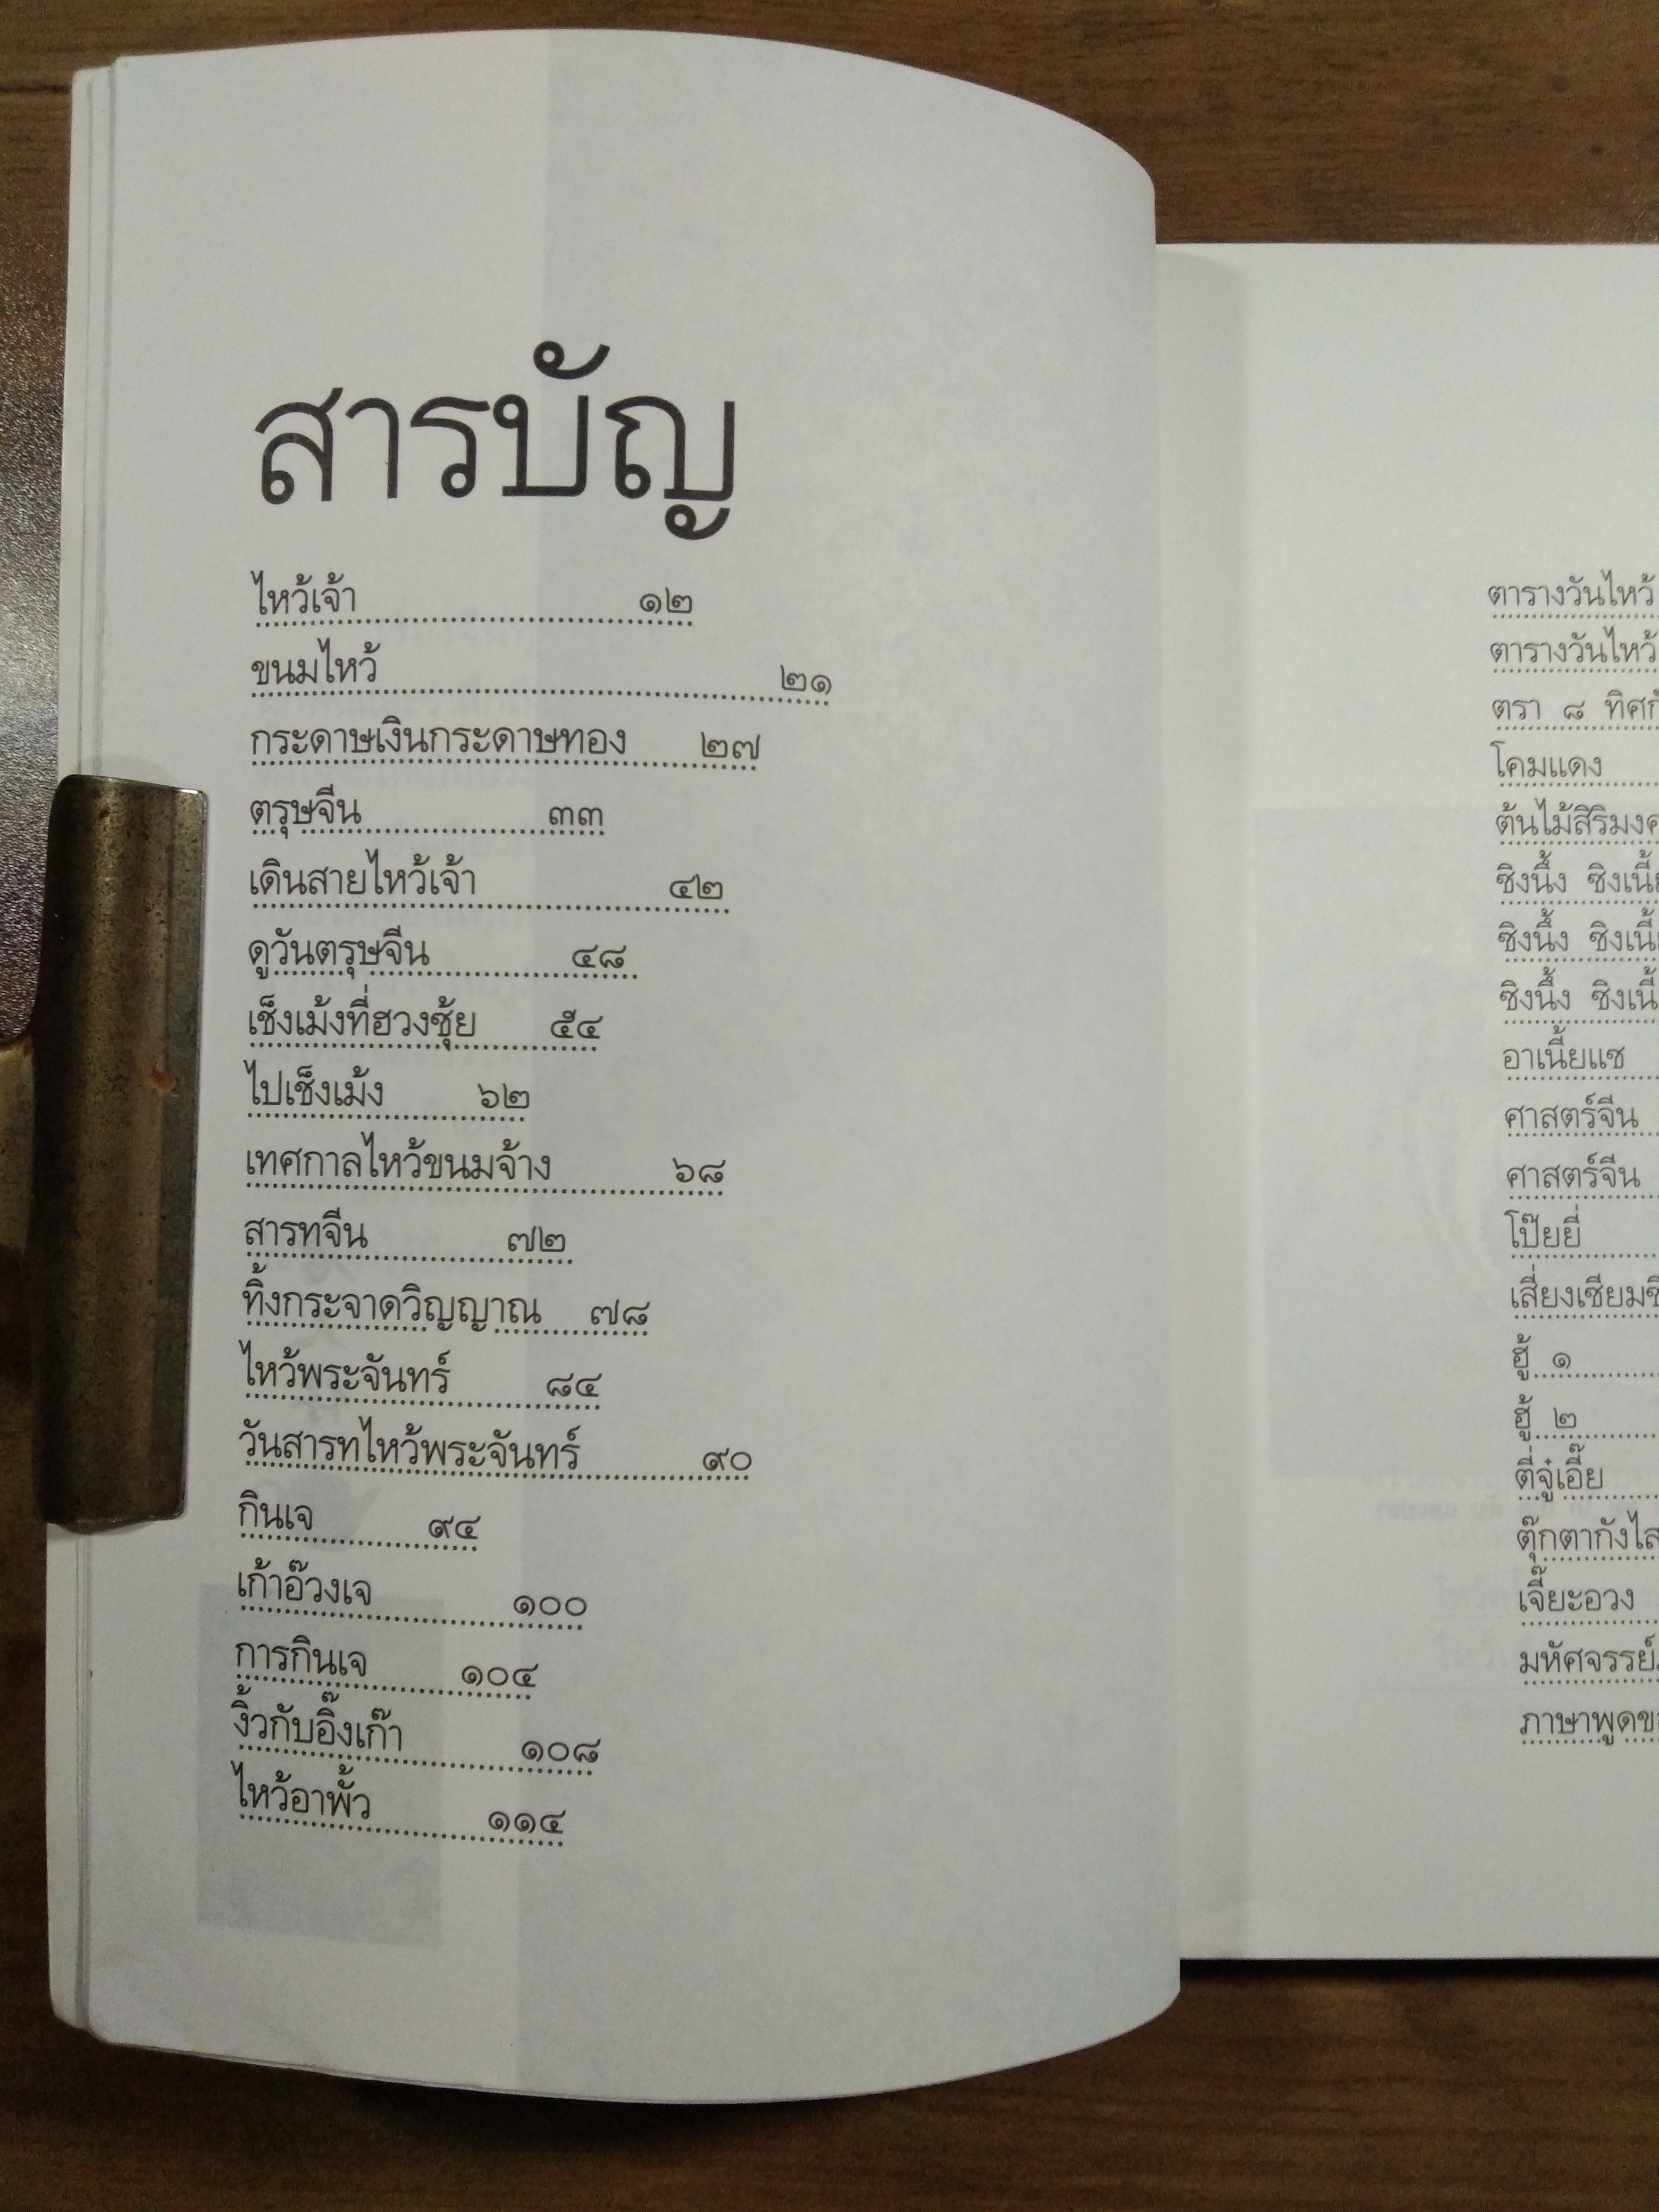 สารบัญ
ไหว้เจ้า ๑๒
ขนมไหว้ ๒๑
กระดาษเงินกระดาษทอง ๒๗
ตรุษจีน ๓๓
เดินสายไหว้เจ้า ๔๒
ดูวันตรุษจีน ๔๘
เช็งเม้งที่ฮวงซุ้ย ๕๔
ไปเช็งเม้ง ๖๒
เทศกาลไหว้ขนมจ้าง ๖๘
สารทจีน ๗๒
ทิ้งกระจาดวิญญาณ ๗๘
ไหว้พระจันทร์ ๘๔
วันสารทไหว้พระจันทร์ ๙๐
กินเจ ๙๔
เก้าอ๊วงเจ ๑๐๐
การกินเจ ๑๐๔
งิ้วกับอิ๊งเก๊า ๑๐๘
ไหว้อาพั้ว ๑๑๔
ตารางวันไหว้
ตารางวันไหว้
ตรา ๘
โคมแดง
ต้นไม้
ซิงนึ้ง
ซิงนึ้ง
ซิงนึ้ง
อาเนี้ยแซ
ศาสตร์จีน
ศาสตร์จีน
โป๊ยยี่
เสี่ยงเซียมซี
ฮู้ ๑
ฮู้ ๒
ตี่จู๋เอี๊ย
ตุ๊กตากังไส
เจี๊ยะอวง
มหัศจรรย์
ภาษาพูด